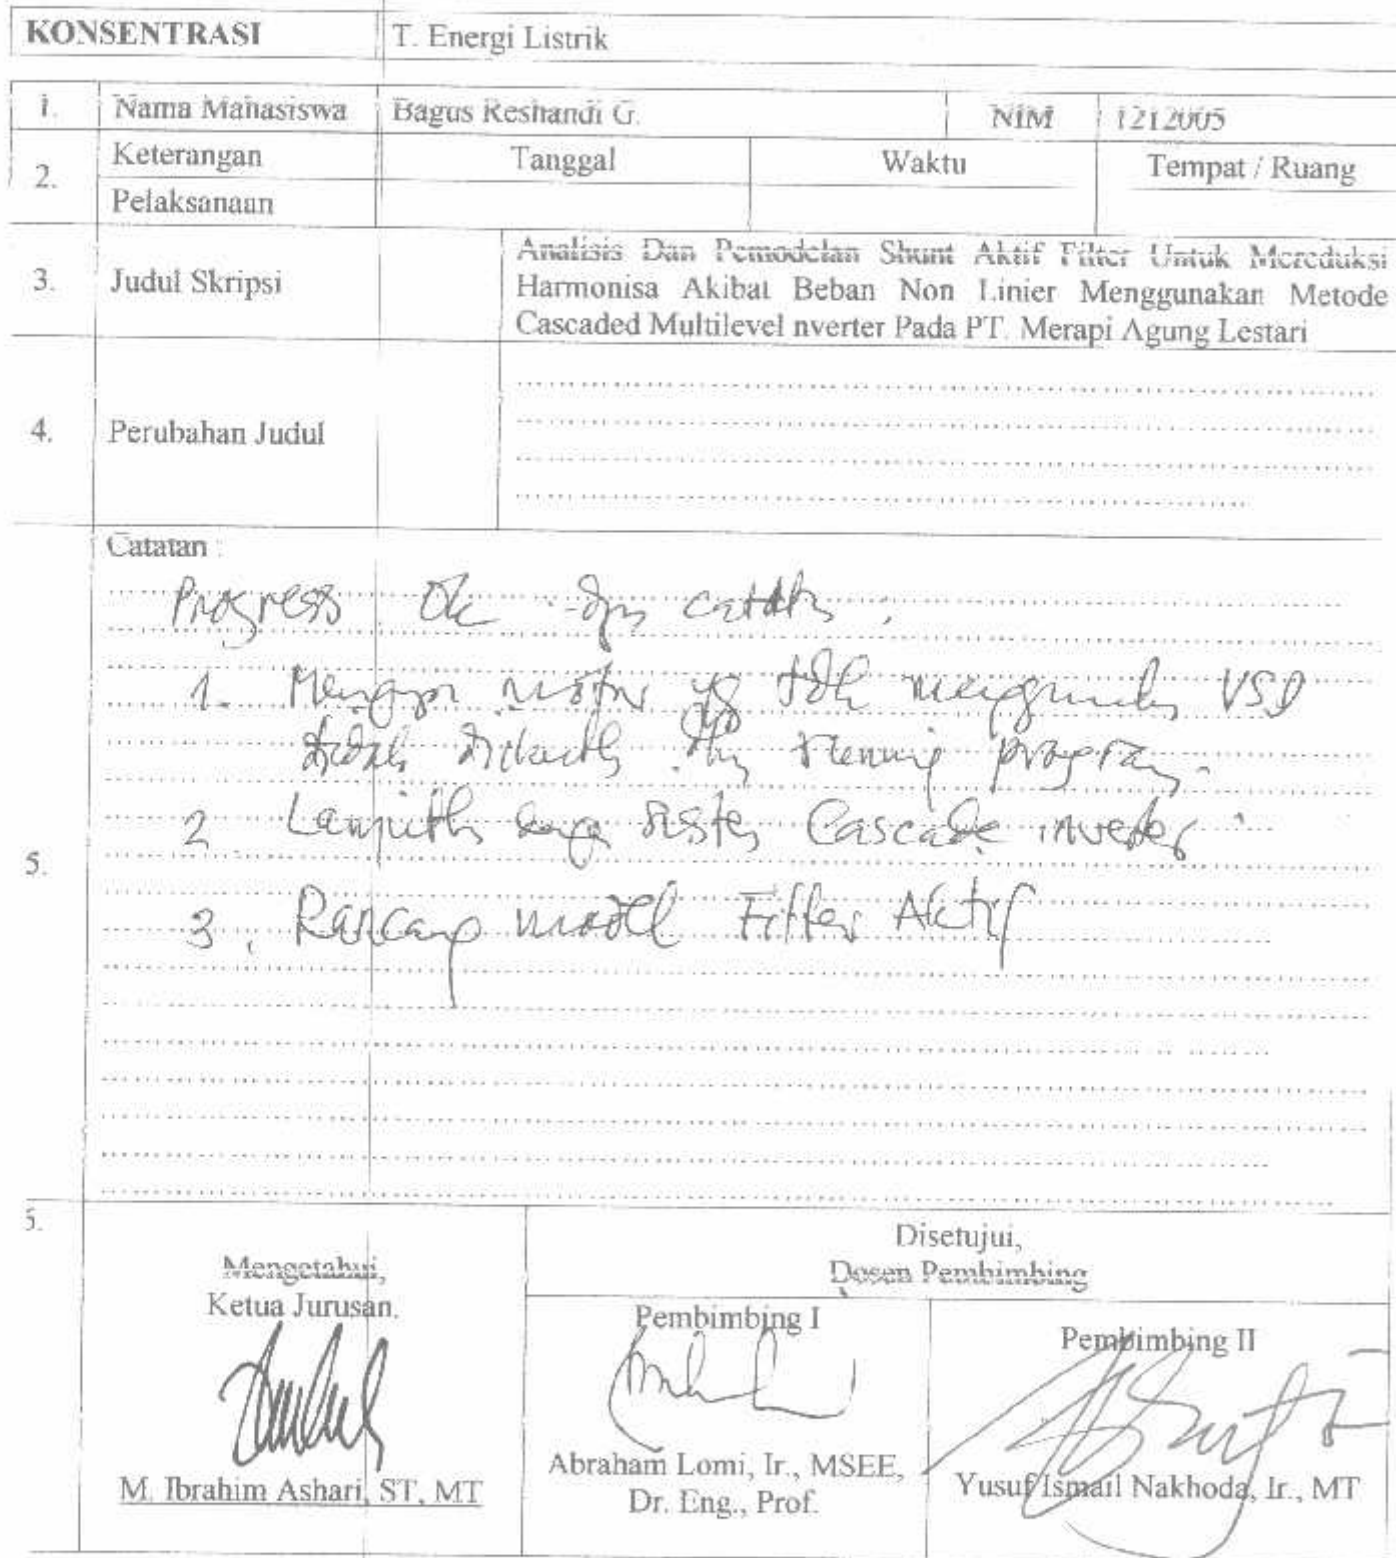 KONSENTRASI T. Energi Listrik
1. Nama Mahasiswa Bagus Reshandi G. NIM 1212005
2. Keterangan Tanggal Waktu Tempat / Ruang
Pelaksanaan
3. Judul Skripsi
Analisis Dan Pemodelan Shunt Aktif Filter Untuk Mereduksi
Harmonisa Akibat Beban Non Linier Menggunakan Metode
Cascaded Multilevel nverter Pada PT. Merapi Agung Lestari
4. Perubahan Judul
5.
Catatan :
Progress Ok
1. motor yg tdk VSD
program.
2 Cascade inverter
3. Rancang model Filter Aktif
5.
Mengetahui,
Ketua Jurusan.
M. Ibrahim Ashari, ST, MT
Disetujui,
Dosen Pembimbing
Pembimbing I
Abraham Lomi, Ir., MSEE,
Dr. Eng., Prof.
Pembimbing II
Yusuf Ismail Nakhoda, Ir., MT